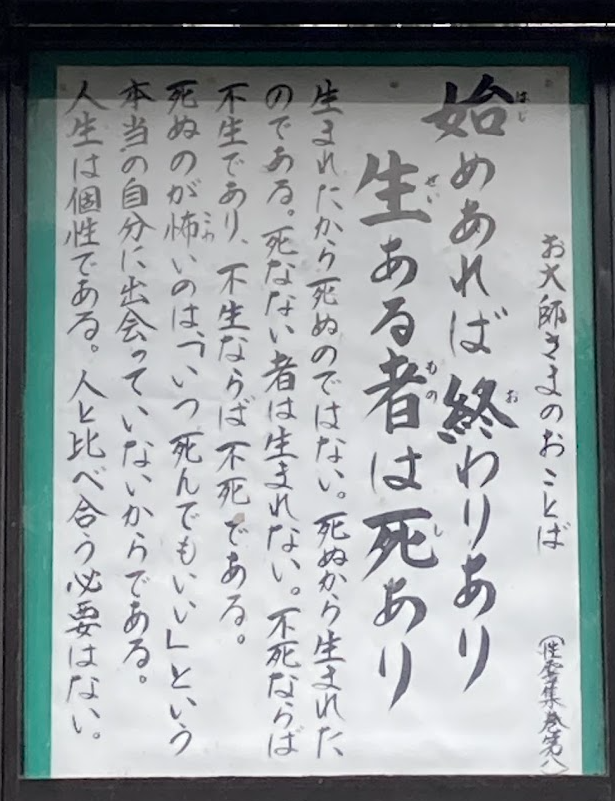 お大師さまのおことば
(性霊集巻第八)
始めあれば終わりあり
生ある者は死あり
生まれたから死ぬのではない。死ぬから生まれた
のである。死なない者は生まれない。不死ならば
不生であり、不生ならば不死である。
死ぬのが怖いのは、「いつ死んでもいい」という
本当の自分に出会っていないからである。
人生は個性である。人と比べ合う必要はない。